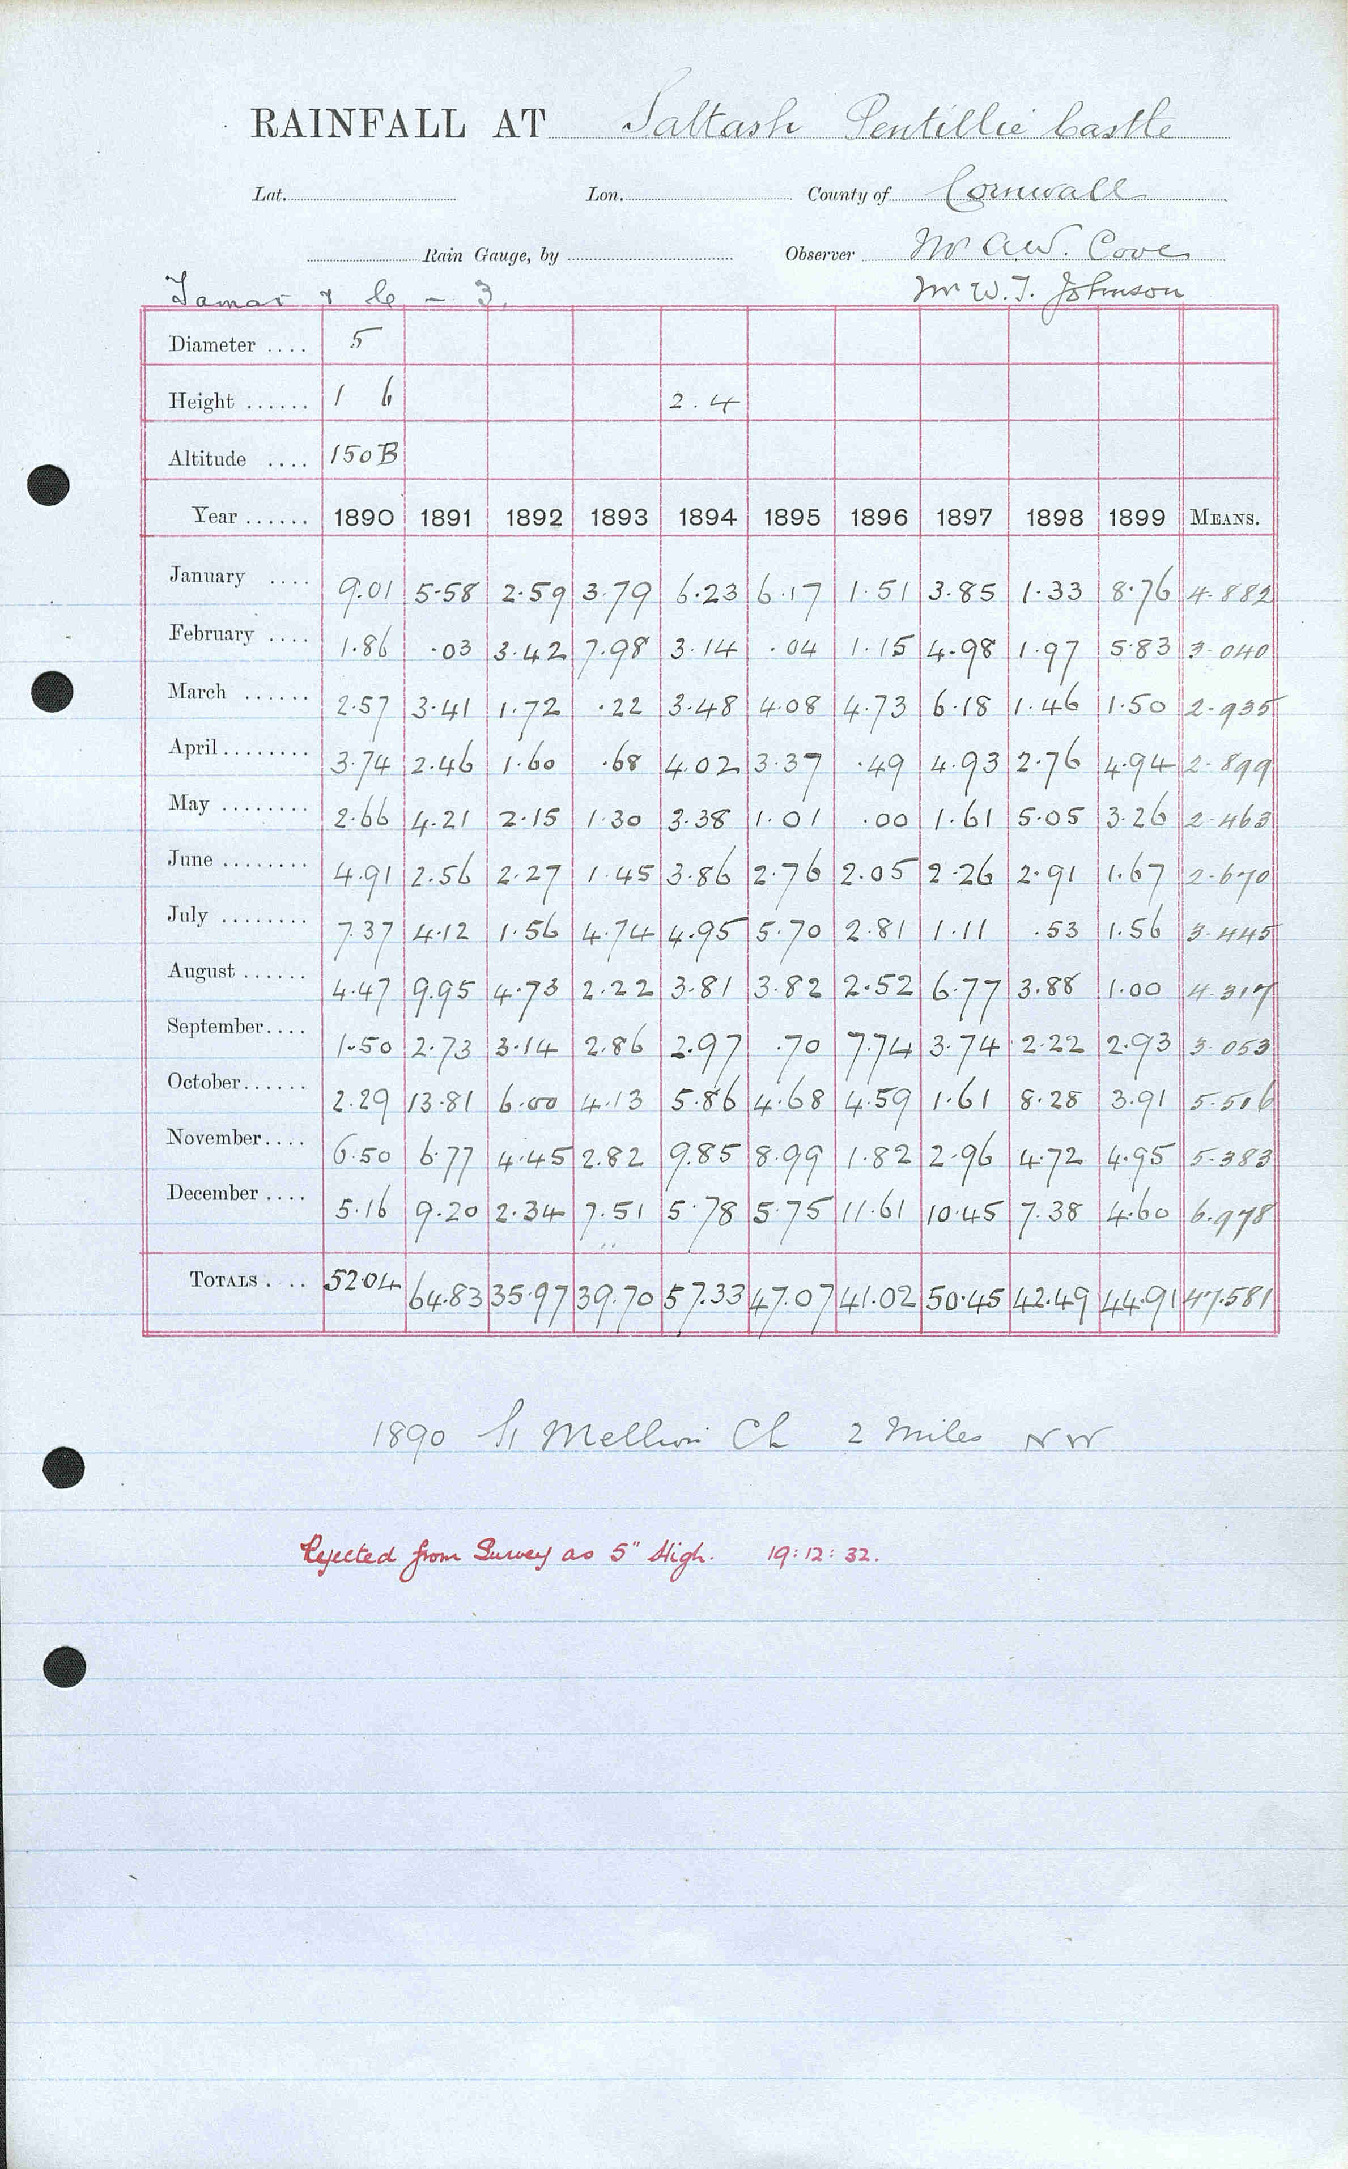 RAINFALL AT Saltash Pentillie Castle
Lat. Lon. County of Cornwall
Rain Gauge, by Observer Mr A.W. Cove
Tamar & C - 3. Mr W. T. Johnson
Diameter .... 5
Height ...... 1 6 2.4
Altitude .... 150 B
Year ...... 1890 1891 1892 1893 1894 1895 1896 1897 1898 1899 MEANS.
January .... 9.01 5.58 2.59 3.79 6.23 6.17 1.51 3.85 1.33 8.76 4.882
February .... 1.86 .03 3.42 7.98 3.14 .04 1.15 4.98 1.97 5.83 3.040
March ...... 2.57 3.41 1.72 .22 3.48 4.08 4.73 6.18 1.46 1.50 2.935
April ........ 3.74 2.46 1.60 .68 4.02 3.37 .49 4.93 2.76 4.94 2.899
May ........ 2.66 4.21 2.15 1.30 3.38 1.01 .00 1.61 5.05 3.26 2.463
June ........ 4.91 2.56 2.27 1.45 3.86 2.76 2.05 2.26 2.91 1.67 2.670
July ........ 7.37 4.12 1.56 4.74 4.95 5.70 2.81 1.11 .53 1.56 3.445
August ...... 4.47 9.95 4.73 2.22 3.81 3.82 2.52 6.77 3.88 1.00 4.317
September.... 1.50 2.73 3.14 2.86 2.97 .70 7.74 3.74 2.22 2.93 3.053
October...... 2.29 13.81 6.00 4.13 5.86 4.68 4.59 1.61 8.28 3.91 5.516
November.... 6.50 6.77 4.45 2.82 9.85 8.99 1.82 2.96 4.72 4.95 5.383
December .... 5.16 9.20 2.34 7.51 5.78 5.75 11.61 10.45 7.38 4.60 6.978
TOTALS . .. 52.04 64.83 35.97 39.70 57.33 47.07 41.02 50.45 42.49 44.91 47.581
1890 St Mellion Ch 2 Miles NW
Rejected from Survey as 5" High. 19:12:32.